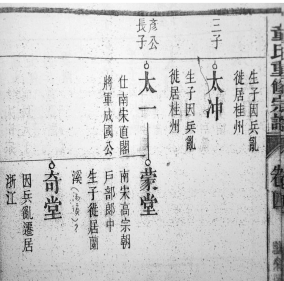 氏重修宗譜
生子因兵亂
徙居桂州
三子
太冲
生子因兵亂
徙居桂州
彦公
長子
太一
仕南宋直閣
將軍咸國公
蒙堂
南宋高宗朝
戶部郎中
生子徙居蘭
溪
奇堂
因兵亂遷居
浙江